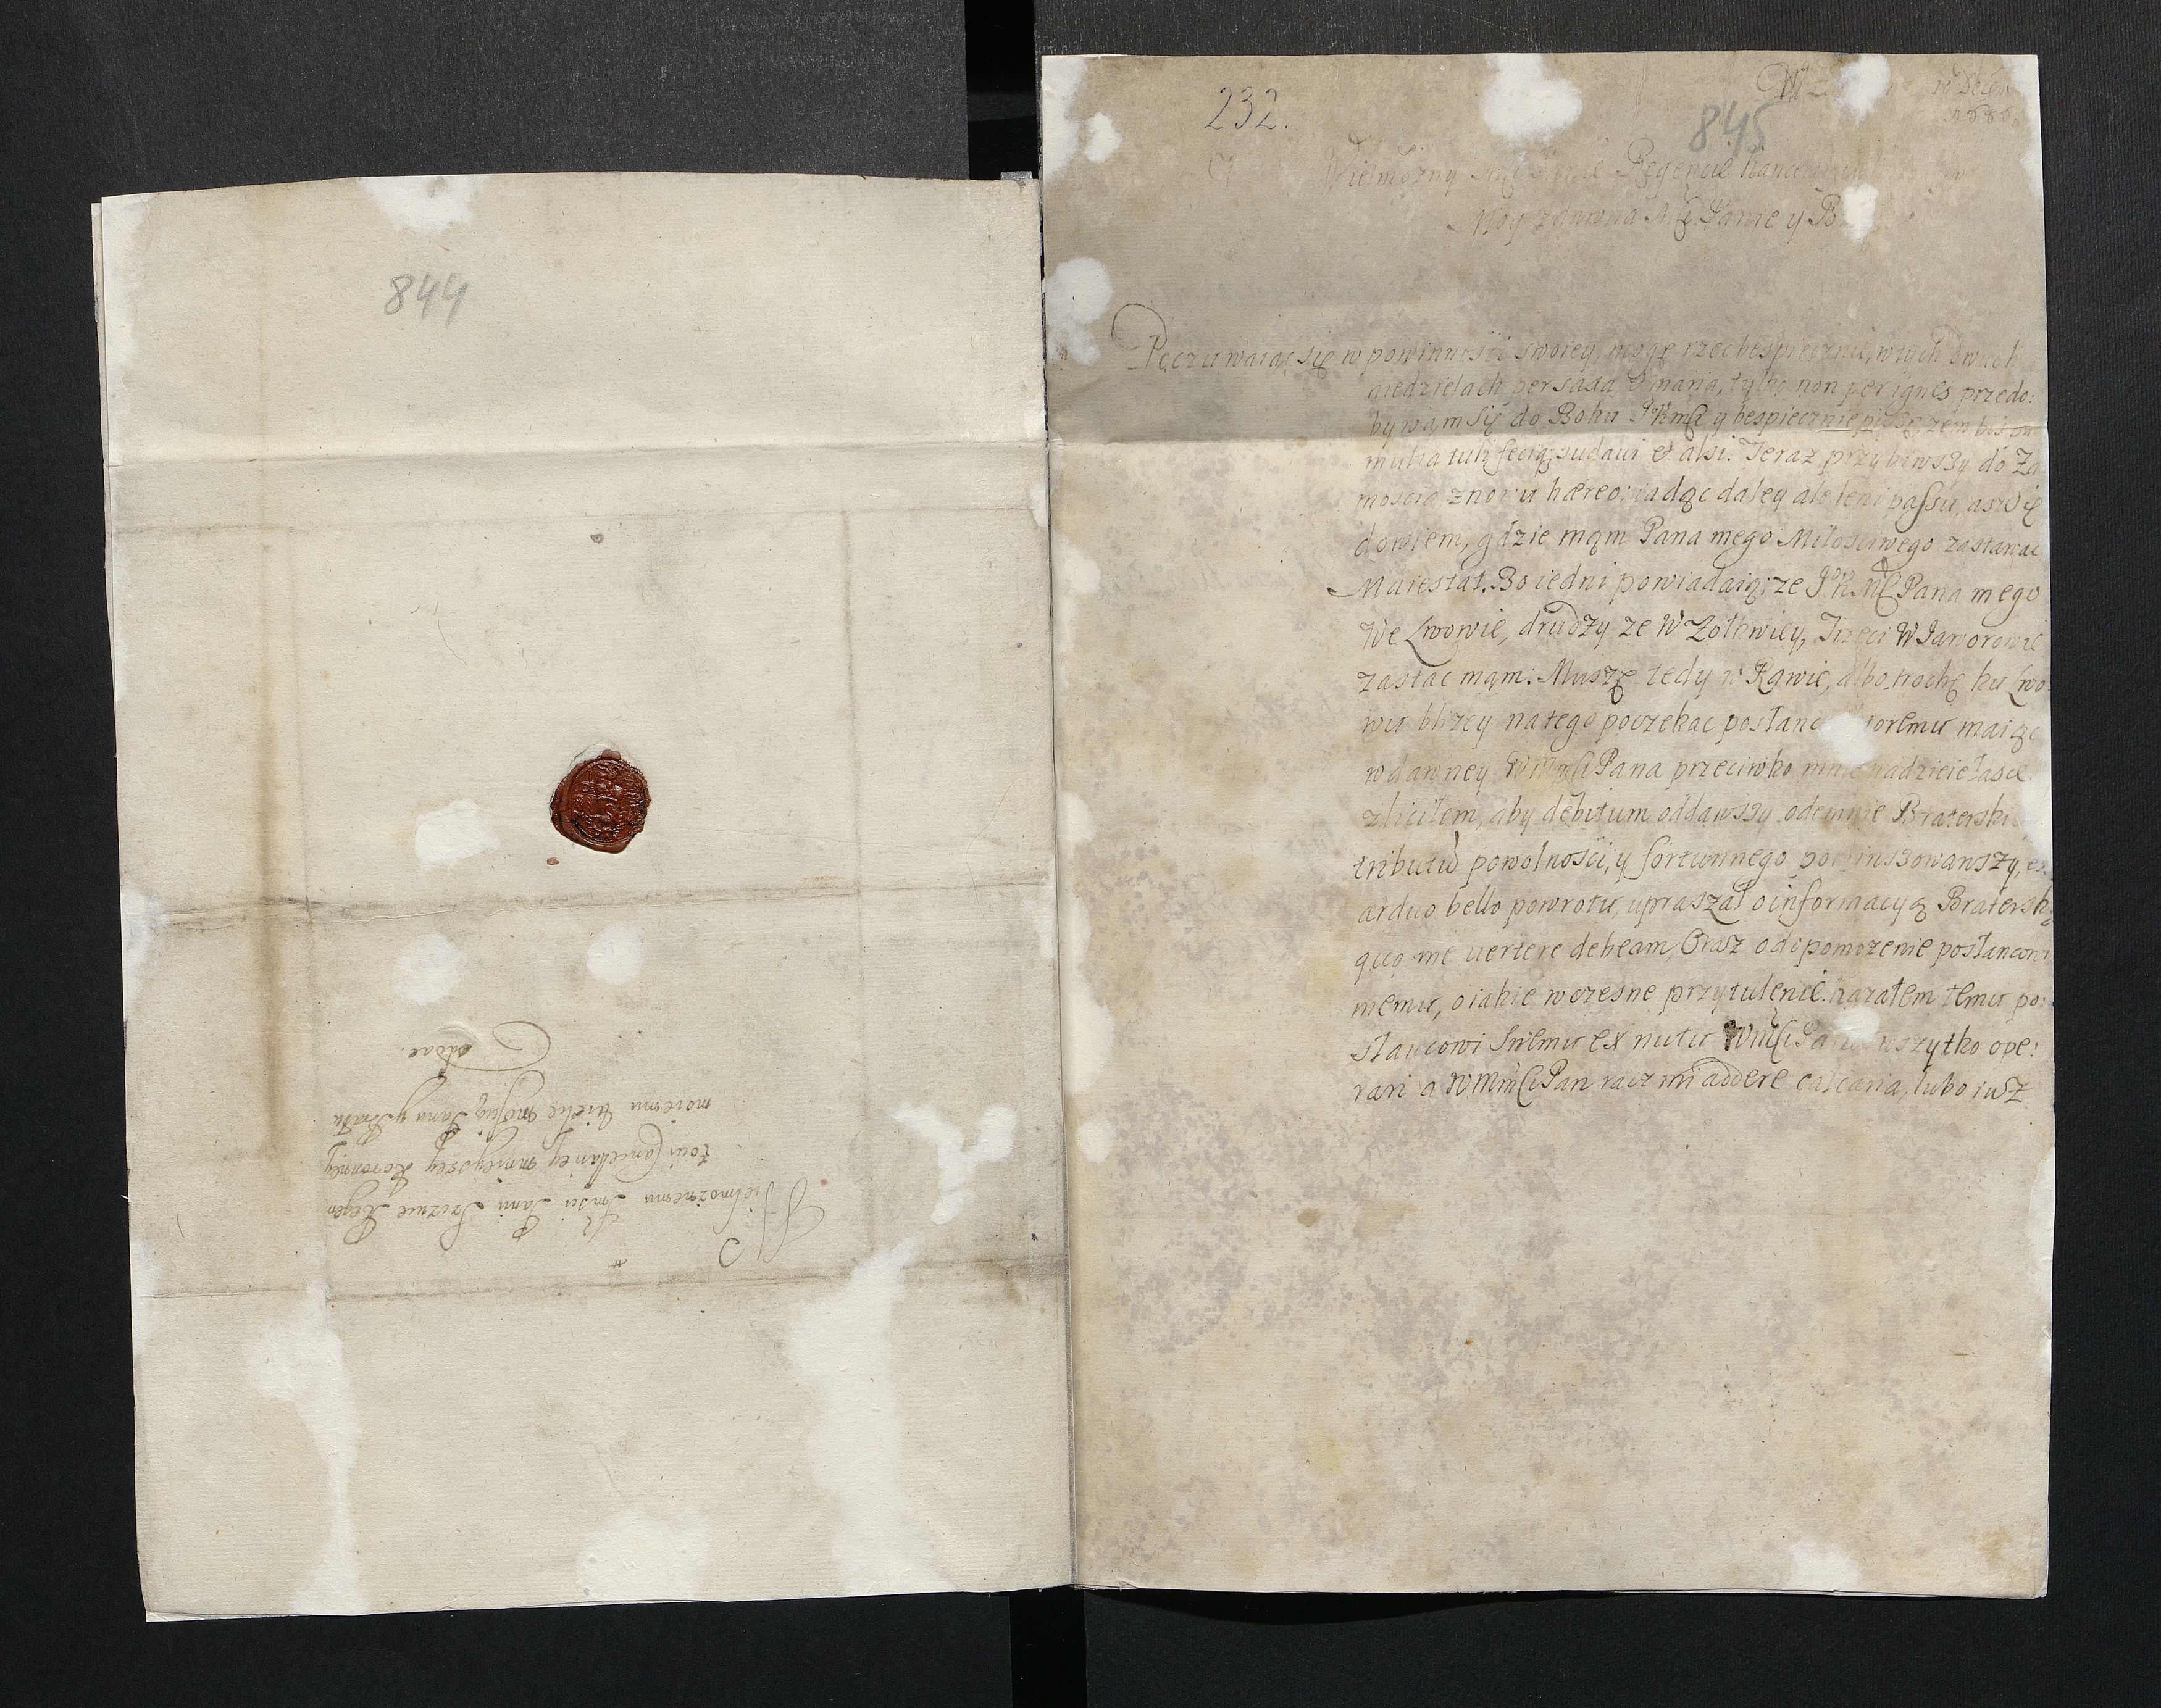 844
Wielmożnemu Jmści Panu Szczuce Regen
towi Cancellariey mnieyszey Koronney
moiemu wielce Mościę Panu y Bratu
oddac.
232.
845
10 Decem
1686.
Wielmożny Regencie
Moy zdawna Mći Panie y B
Poczuwaiąc się w powinności swoiey, mogę rzec bespiecznie, w tych dwuch
niedzielach per saxa, maria, tylko non per ignes przedo:
bywam się do Boku JKMći y bespiecznie piszę, zem
multa tuli feciq; sudaui et alsi. Teraz przybiwszy do Za
moscia znowu hæreo: iadąc daley ale leni passu, asz się
dowiem, gdzie mąm Pana mego Miłosciwego zastawac
Maiestat. Bo iedni powiadaią, ze JKMći Pana mego
We Lwowie, drudzy ze W Zołkwiey, Trzeci W Jaworowie
zastac mąm: Muszę tedy w Rawie, albo trochę ku Lwo
wu blizey na tego poczekac posłanc toremu maiąc
w dawney WMMći Pana przeciwko mnie nadzieie łasce
zliciłem, aby debitum oddawszy odemnie Braterski
tributũ powolności, y fortunnego powinszowawszy, ex
arduo bello powrotu, upraszał o informacyą Braterską
quo me uertere debeam, Oraz o dopomozenie posłancowi
memu, o iakie wczesne przytulenie. kazałem temu po:
słancowi swemu ex nutu WMMći Pana wszytko ope:
rari a WMMći Pan racz mi addere calcaria, lubo iusz